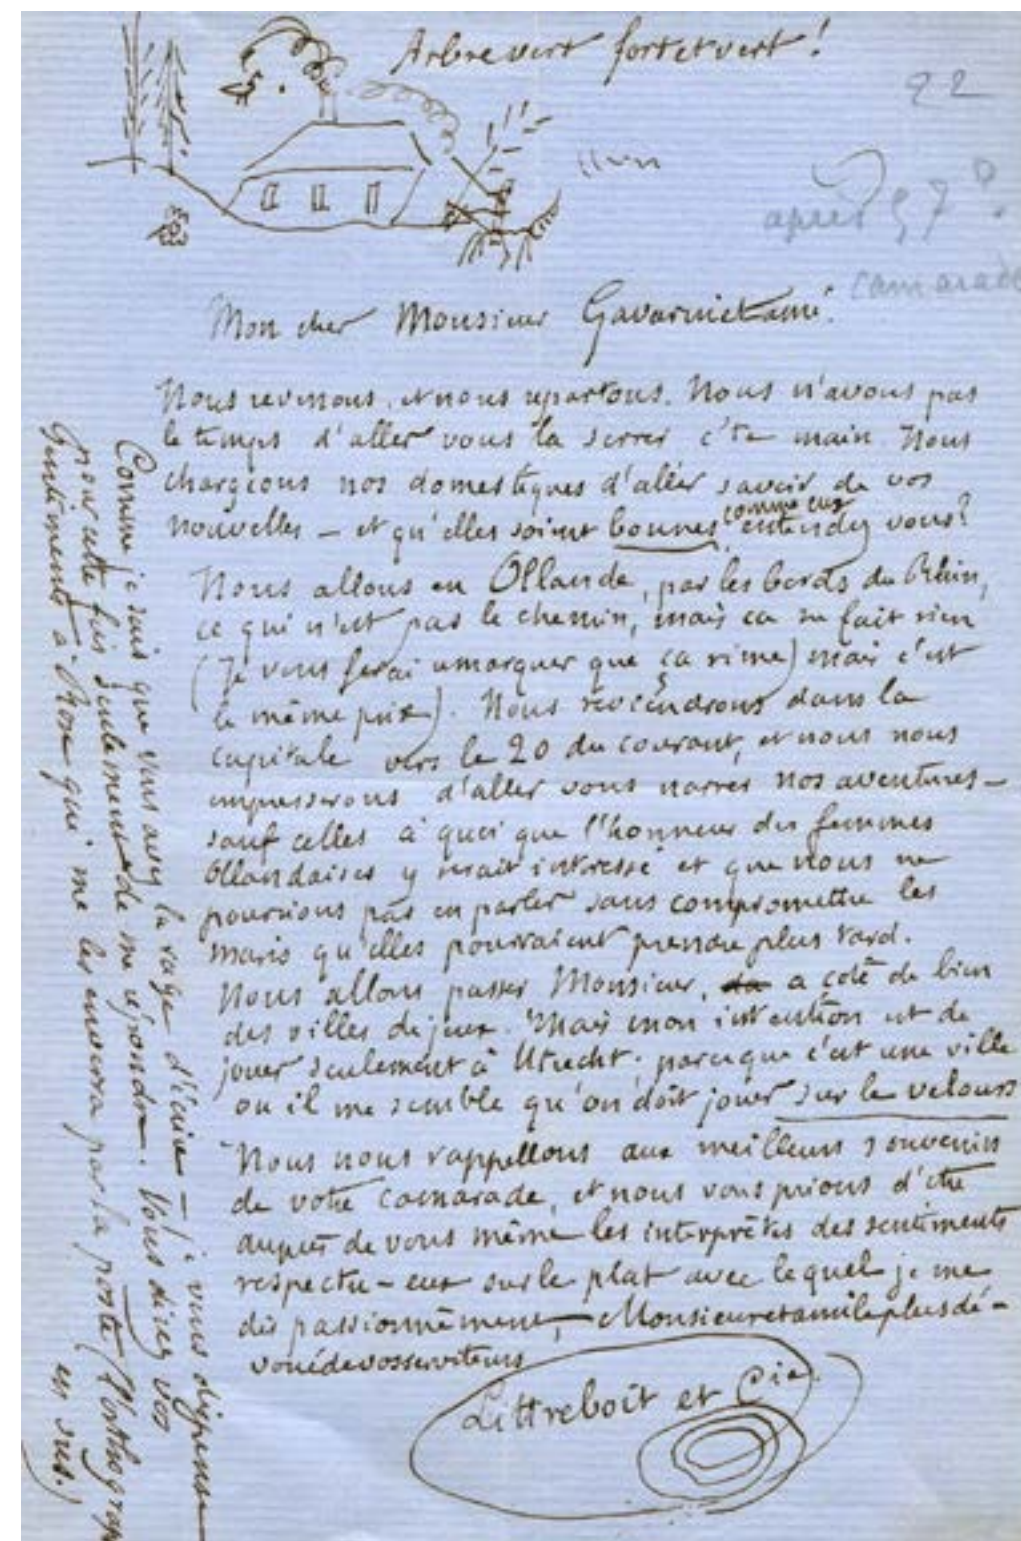 Arbrevert fortetvert !
22
après 57 ?
camarade
Mon cher Monsieur Gavarnietami.
Nous revenons, et nous repartons. Nous n'avons pas
le temps d'aller vous la serrer c'te main. Nous
chargeons nos domestiques d'aller savoir de vos
nouvelles – et qu'elles soient bonnes, comme eux entendez vous ?
Nous allons en Ollande, par les bords du Rhin,
ce qui n'est pas le chemin, mais ca ne fait rien
(Je vous ferai remarquer que ça rime) mais c'est
le même prix). Nous reviendrons dans la
capitale vers le 20 du courant, et nous nous
empresserons d'aller vous narrer nos aventures –
sauf celles à quoi que l'honneur des femmes
Ollandaises y serait interessé et que nous ne
pourrions pas en parler sans compromettre les
maris qu'elles pourraient prendre plus tard.
Nous allons passer Monsieur, a coté de bien
des villes de jeux. Mais mon intention est de
jouer seulement à Utrecht. parceque c'est une ville
ou il me semble qu'on doit jouer sur le velours
Nous nous rappellons aux meilleurs souvenirs
de votre camarade, et nous vous prions d'être
auprès de vous même les interprètes des sentiments
respectu – eux sur le plat avec lequel je me
dis passionnément, – Monsieuretamileplusdé –
vouédevosserviteurs
Littreboit et Cie.
Comme je sais que vous avez la rage d'écrire – je vous dispense
pour cette fois seulement de me répondre. Vous direz vos
sentiments à Rose qui me les enverra par la poste (l'orthograp
en sus.)